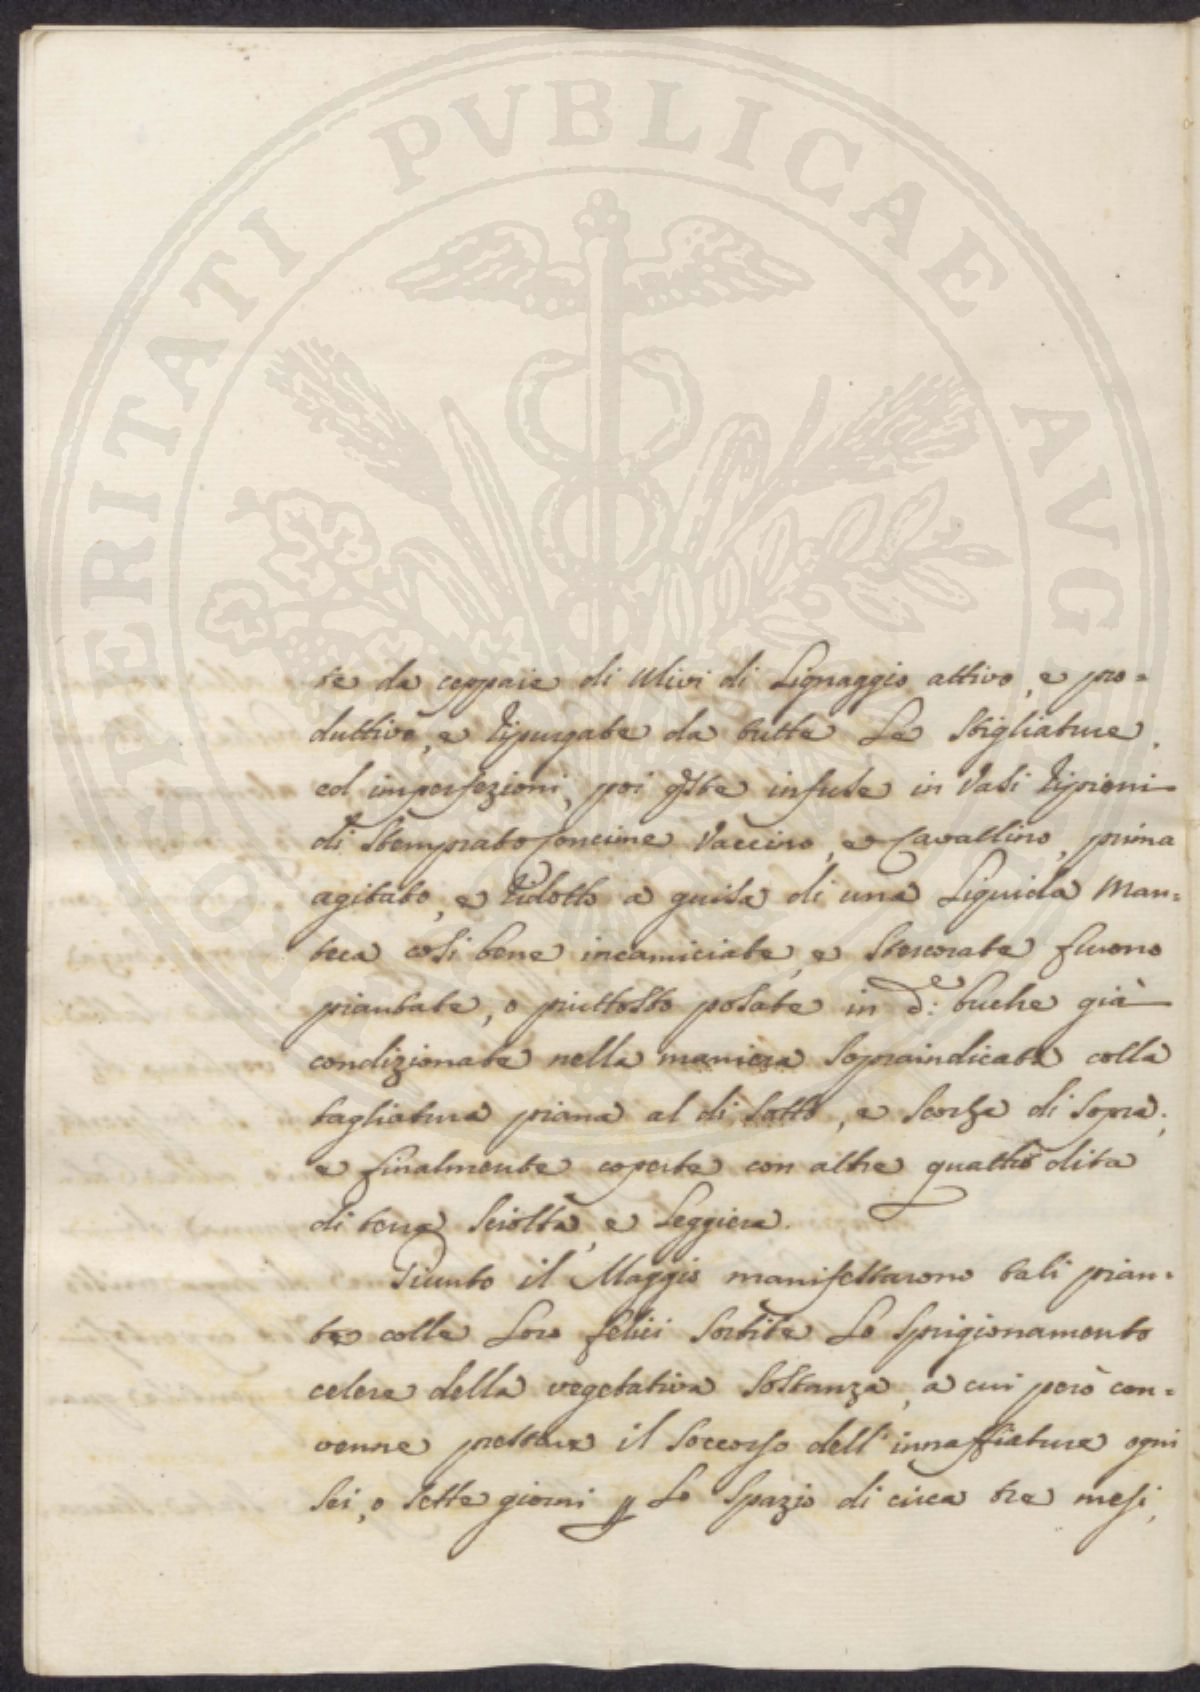 PROSPERITATI PVBLICAE AVGENDAE
te da ceppaie di Ulivi di Lignaggio attivo, e pro=
duttivo, e ripurgate da tutte Le Stigliature,
ed imperfezioni, poi qste infuse in Vasi ripieni
di Stemprato Concime Vaccino, e Cavallino, prima
agitato, e ridotto a guisa di una Liquida Man=
teca così bene incamiciate, e Stercorate furono
piantate, o piuttosto posate in d.e buche già
condizionate nella maniera Sopraindicata colla
tagliatura piana al di sotto, e Scorza di Sopra;
e finalmente coperte con altre quattro dita
di terra Sciolta, e Leggiera.
Giunto il Maggio manifestarono tali pian=
te colle Loro felici Sortite Lo Sprigionamento
celere della vegetativa Sostanza, a cui però con=
venne prestare il Soccorso dell'innaffiature ogni
Sei, o Sette giorni p Lo Spazio di circa tre mesi,